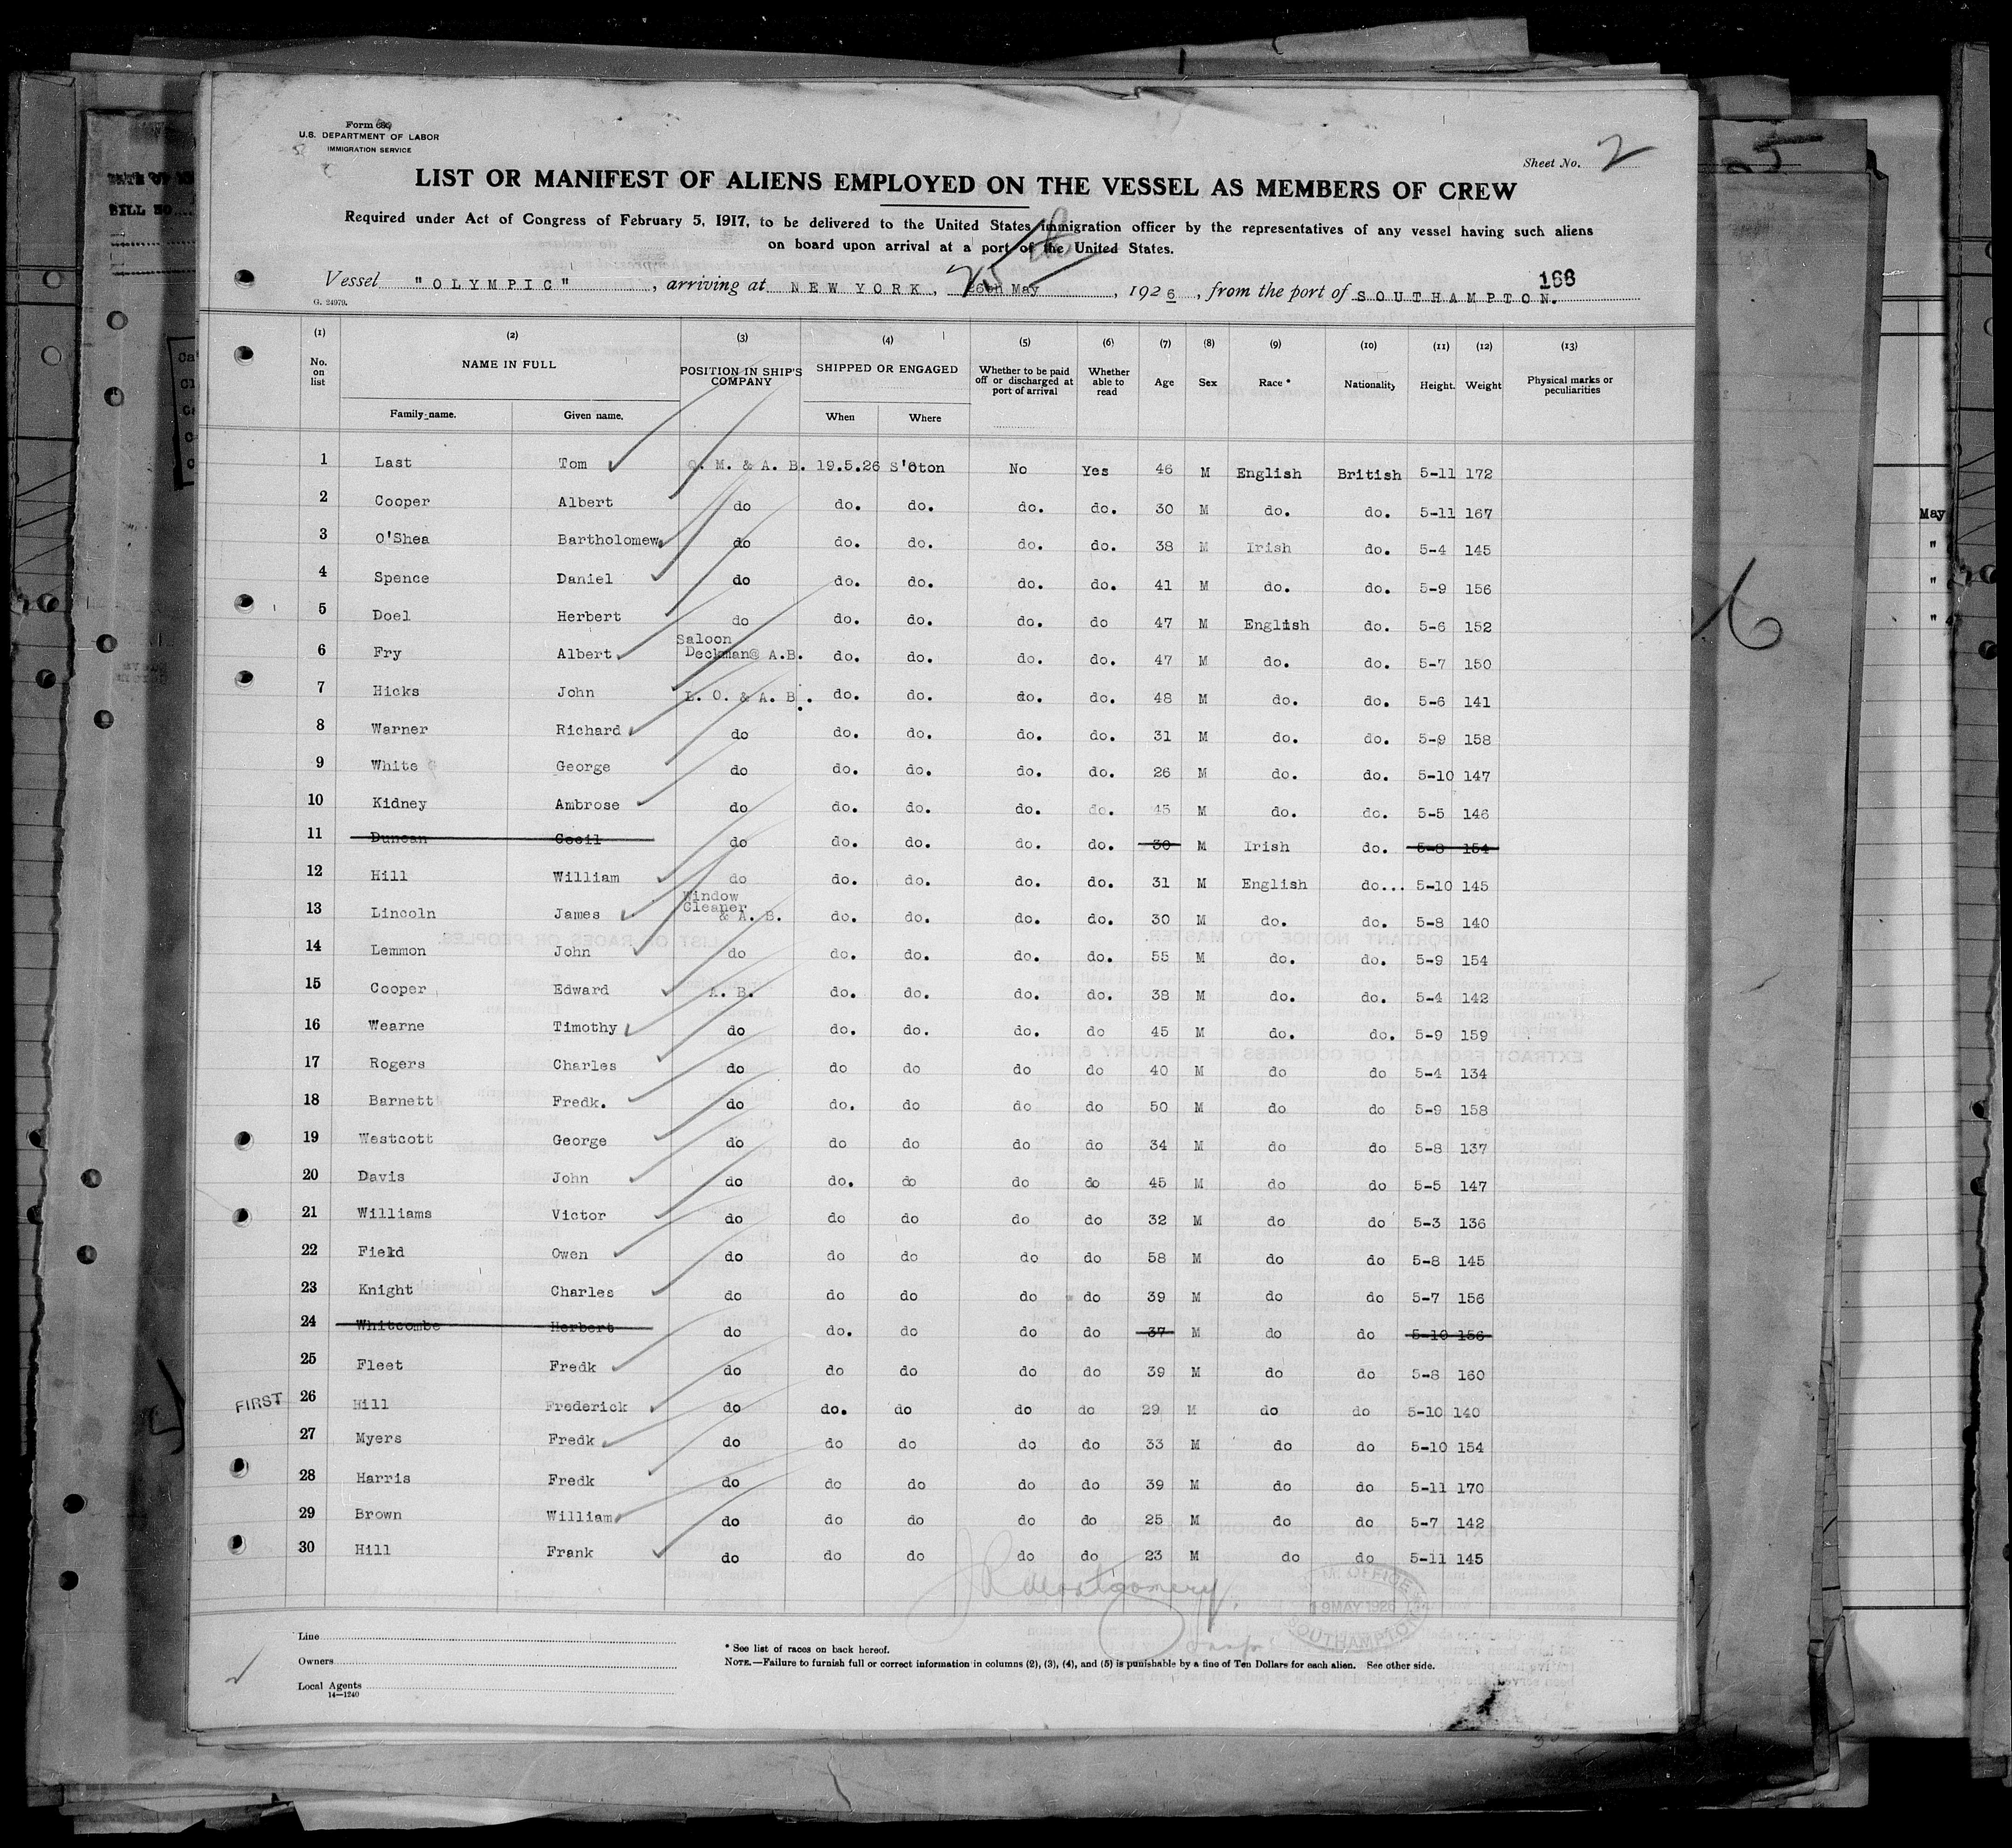 Form 680
U.S. DEPARTMENT OF LABOR
IMMIGRATION SERVICE
Sheet No. 2
LIST OR MANIFEST OF ALIENS EMPLOYED ON THE VESSEL AS MEMBERS OF CREW
Required under Act of Congress of February 5, 1917, to be delivered to the United States Immigration officer by the representatives of any vessel having such aliens
on board upon arrival at a port of the United States.
168
Vessel "OLYMPIC", arriving at NEW YORK, 25th May, 1926, from the port of SOUTHAMPTON.
G. 24979.
(1) (2) (3) (4) (5) (6) (7) (8) (9) (10) (11) (12) (13)
No. on list NAME IN FULL POSITION IN SHIP'S COMPANY SHIPPED OR ENGAGED Whether to be paid off or discharged at port of arrival Whether able to read Age Sex Race * Nationality Height. Weight Physical marks or peculiarities
Family name. Given name. When Where
1 Last Tom Q. M. & A. B. 19.5.26 S'ton No Yes 46 M English British 5-11 172
2 Cooper Albert do do. do. do. do. 30 M do. do. 5-11 167
3 O'Shea Bartholomew. do do. do. do. do. 38 M Irish do. 5-4 145
4 Spence Daniel do do. do. do. do. 41 M do. do. 5-9 156
5 Doel Herbert do do. do. do. do 47 M English do. 5-6 152
6 Fry Albert Saloon Deckman@ A.B. do. do. do. do. 47 M do. do. 5-7 150
7 Hicks John L. O. & A. B. do. do. do. do. 48 M do. do. 5-6 141
8 Warner Richard do do. do. do. do. 31 M do. do. 5-9 158
9 White George do do. do. do. do. 26 M do. do. 5-10 147
10 Kidney Ambrose do do. do. do. do. 45 M do. do. 5-5 146
11 Duncan Cecil do do. do. do. do. 30 M Irish do. 5-8 154
12 Hill William do do. do. do. do. 31 M English do... 5-10 145
13 Lincoln James Window Cleaner & A. B. do. do. do. do. 30 M do. do. 5-8 140
14 Lemmon John do do. do. do. do. 55 M do. do. 5-9 154
15 Cooper Edward A. B. do. do. do. do. 38 M do. do. 5-4 142
16 Wearne Timothy do do. do. do. do 45 M do. do. 5-9 159
17 Rogers Charles do do do do do 40 M do do 5-4 134
18 Barnett Fredk. do do. do do do 50 M do do 5-9 158
19 Westcott George do do do do do 34 M do do 5-8 137
20 Davis John do do. do do do 45 M do do 5-5 147
21 Williams Victor do do do do do 32 M do do 5-3 136
22 Field Owen do do do do do 58 M do do 5-8 145
23 Knight Charles do do do do do 39 M do do 5-7 156
24 Whitcombe Herbert do do. do do do 37 M do do 5-10 156
25 Fleet Fredk do do do do do 39 M do do 5-8 160
FIRST 26 Hill Frederick do do. do do do 29 M do do 5-10 140
27 Myers Fredk do do do do do 33 M do do 5-10 154
28 Harris Fredk do do do do do 39 M do do 5-11 170
29 Brown William do do do do do 25 M do do 5-7 142
30 Hill Frank do do do do do 23 M do do 5-11 145
Montgomery
OFFICE
19 MAY 1926
SOUTHAMPTON
Line
Owners
Local Agents
14—1240
* See list of races on back hereof.
NOTE.—Failure to furnish full or correct information in columns (2), (3), (4), and (5) is punishable by a fine of Ten Dollars for each alien. See other side.
May
"
"
"